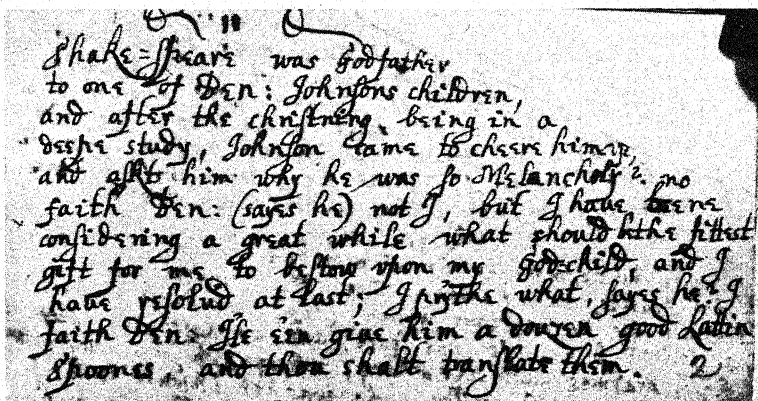 Shake=speare was godfather
to one of Ben: Johnsons children,
and after the christning, being in a
deepe study, Johnson came to cheere him up,
and askt him why he was so Melancholy? no
faith Ben: (sayes he) not I, but I have beene
considering a great while what should be the fittest
gift for me to bestow upon my god=child, and I
have resolud at last; I pry'the what, sayes he? I
faith Ben: I'le e'en giue him a douzen good Lattin
Spoones, and thou shalt translate them. 2